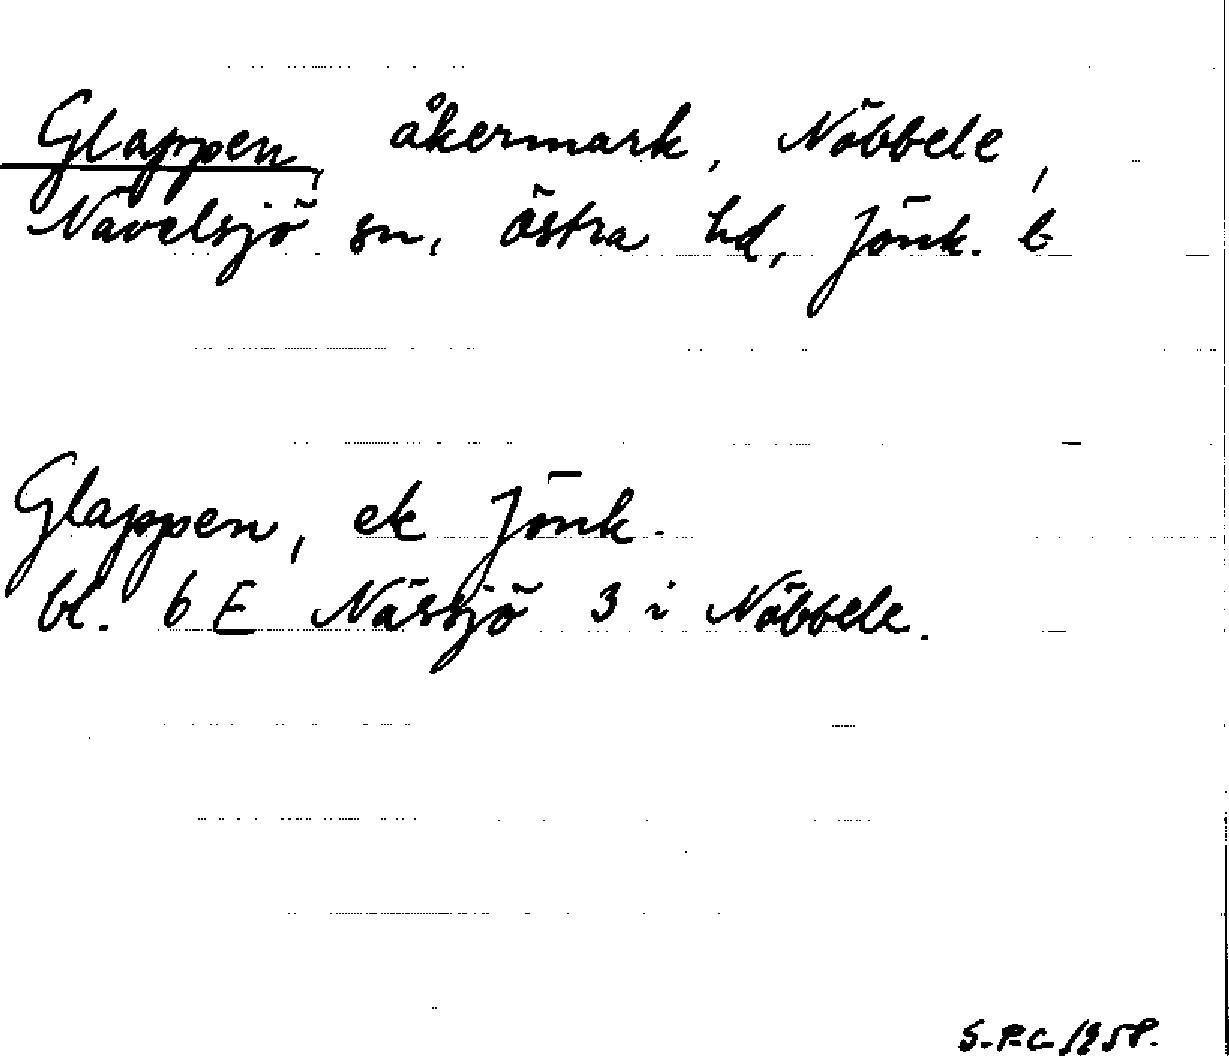 Glappen, åkermark, Nöbbele,
Nävelsjö sn, Östra hd, Jönk. l
Glappen, ek Jönk.
bl. 6 E Nässjö 3 i Nöbbele.
S.F.C. 1958.